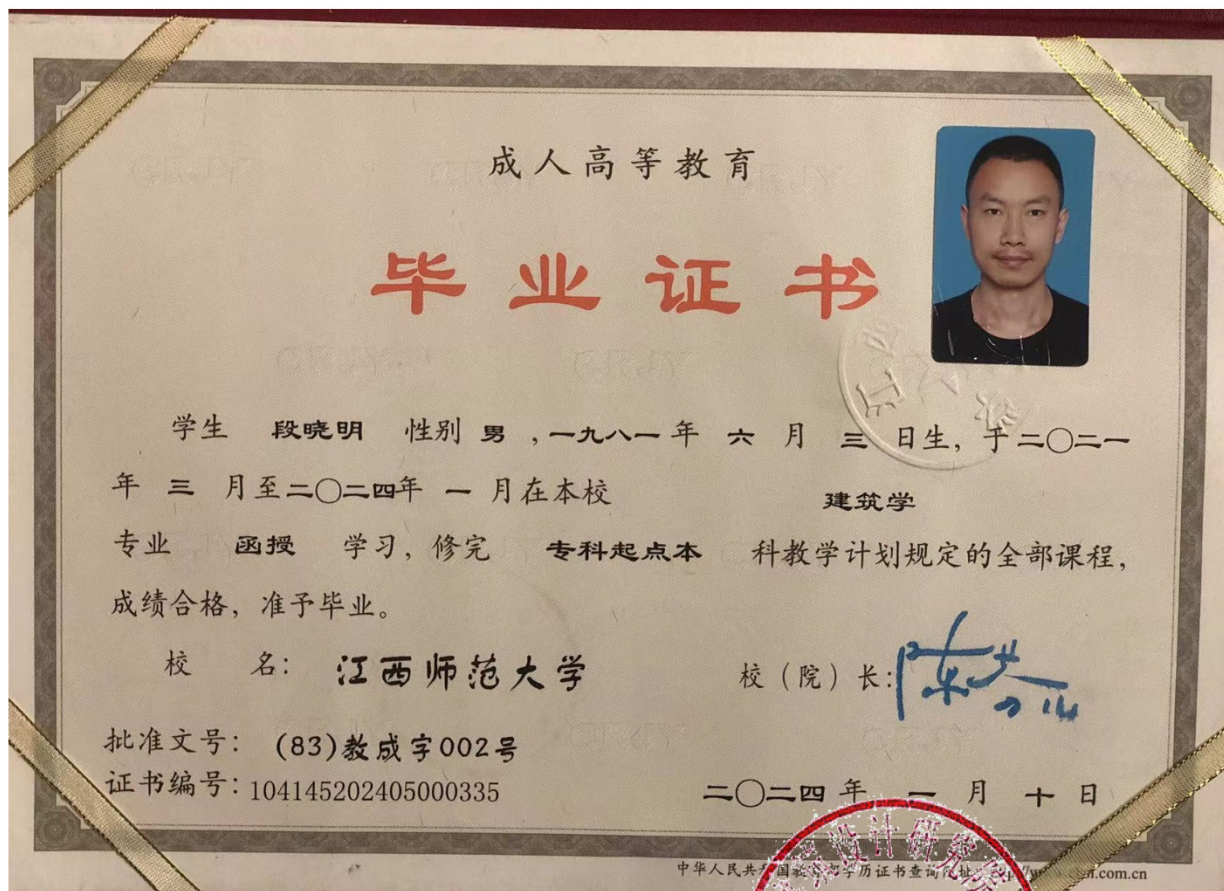 成人高等教育
毕业证书
学生 段晓明 性别 男 ,一九八一 年 六 月 三 日生, 于二〇二一
年 三 月至二〇二四年 一 月在本校 建筑学
专业 函授 学习, 修完 专科起点本 科教学计划规定的全部课程,
成绩合格, 准予毕业。
校 名: 江西师范大学 校(院)长:
批准文号: (83)教成字002号
证书编号: 104145202405000335
二〇二四 年 一 月 十 日
设计研究
中华人民共和国教育部学历证书查询网址: http:// .com.cn